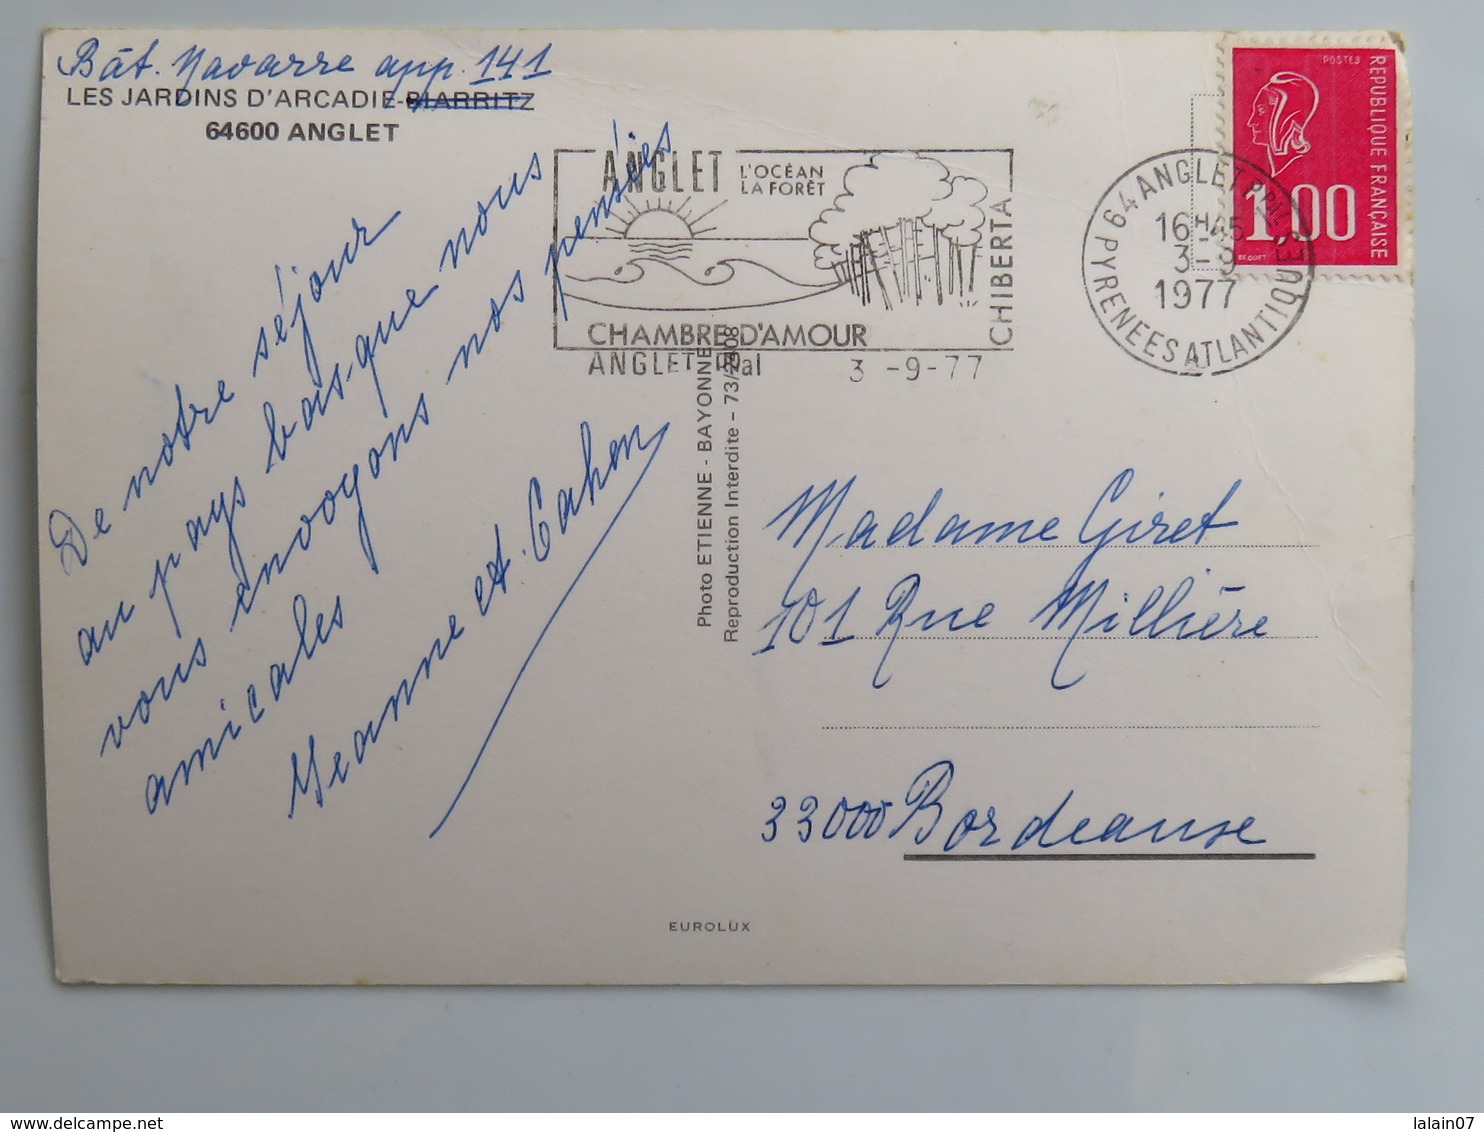 Bât. Navarre app. 141
LES JARDINS D'ARCADIE-BIARRITZ
64600 ANGLET
De notre séjour
au pays basque nous
vous envoyons nos pensées
amicales
Jeanne et Cahen
ANGLET L'OCÉAN
LA FORÊT
CHIBERTA
CHAMBRE D'AMOUR
ANGLET PPal 3 -9-77
64 ANGLET PPAL
PYRENEES ATLANTIQUES
16H45
3-9
1977
POSTES
REPUBLIQUE FRANÇAISE
1,00
BEQUET
Photo ETIENNE - BAYONNE
Reproduction Interdite - 73/2808
Madame Giret
101 Rue Millière
33000 Bordeause
EUROLUX
lalain07